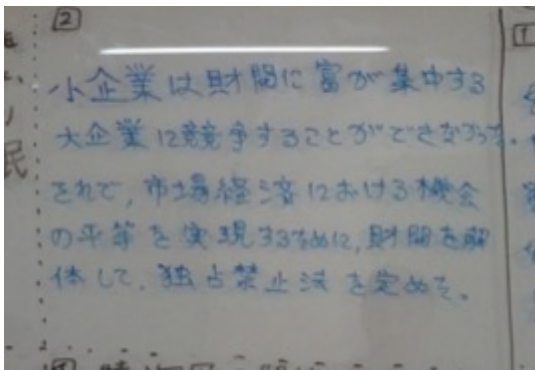 2
小企業は財閥に富が集中する
大企業に競争することができなかった。
それで、市場経済における機会
の平等を実現するために、財閥を解
体して、独占禁止法を定めた。
民
1